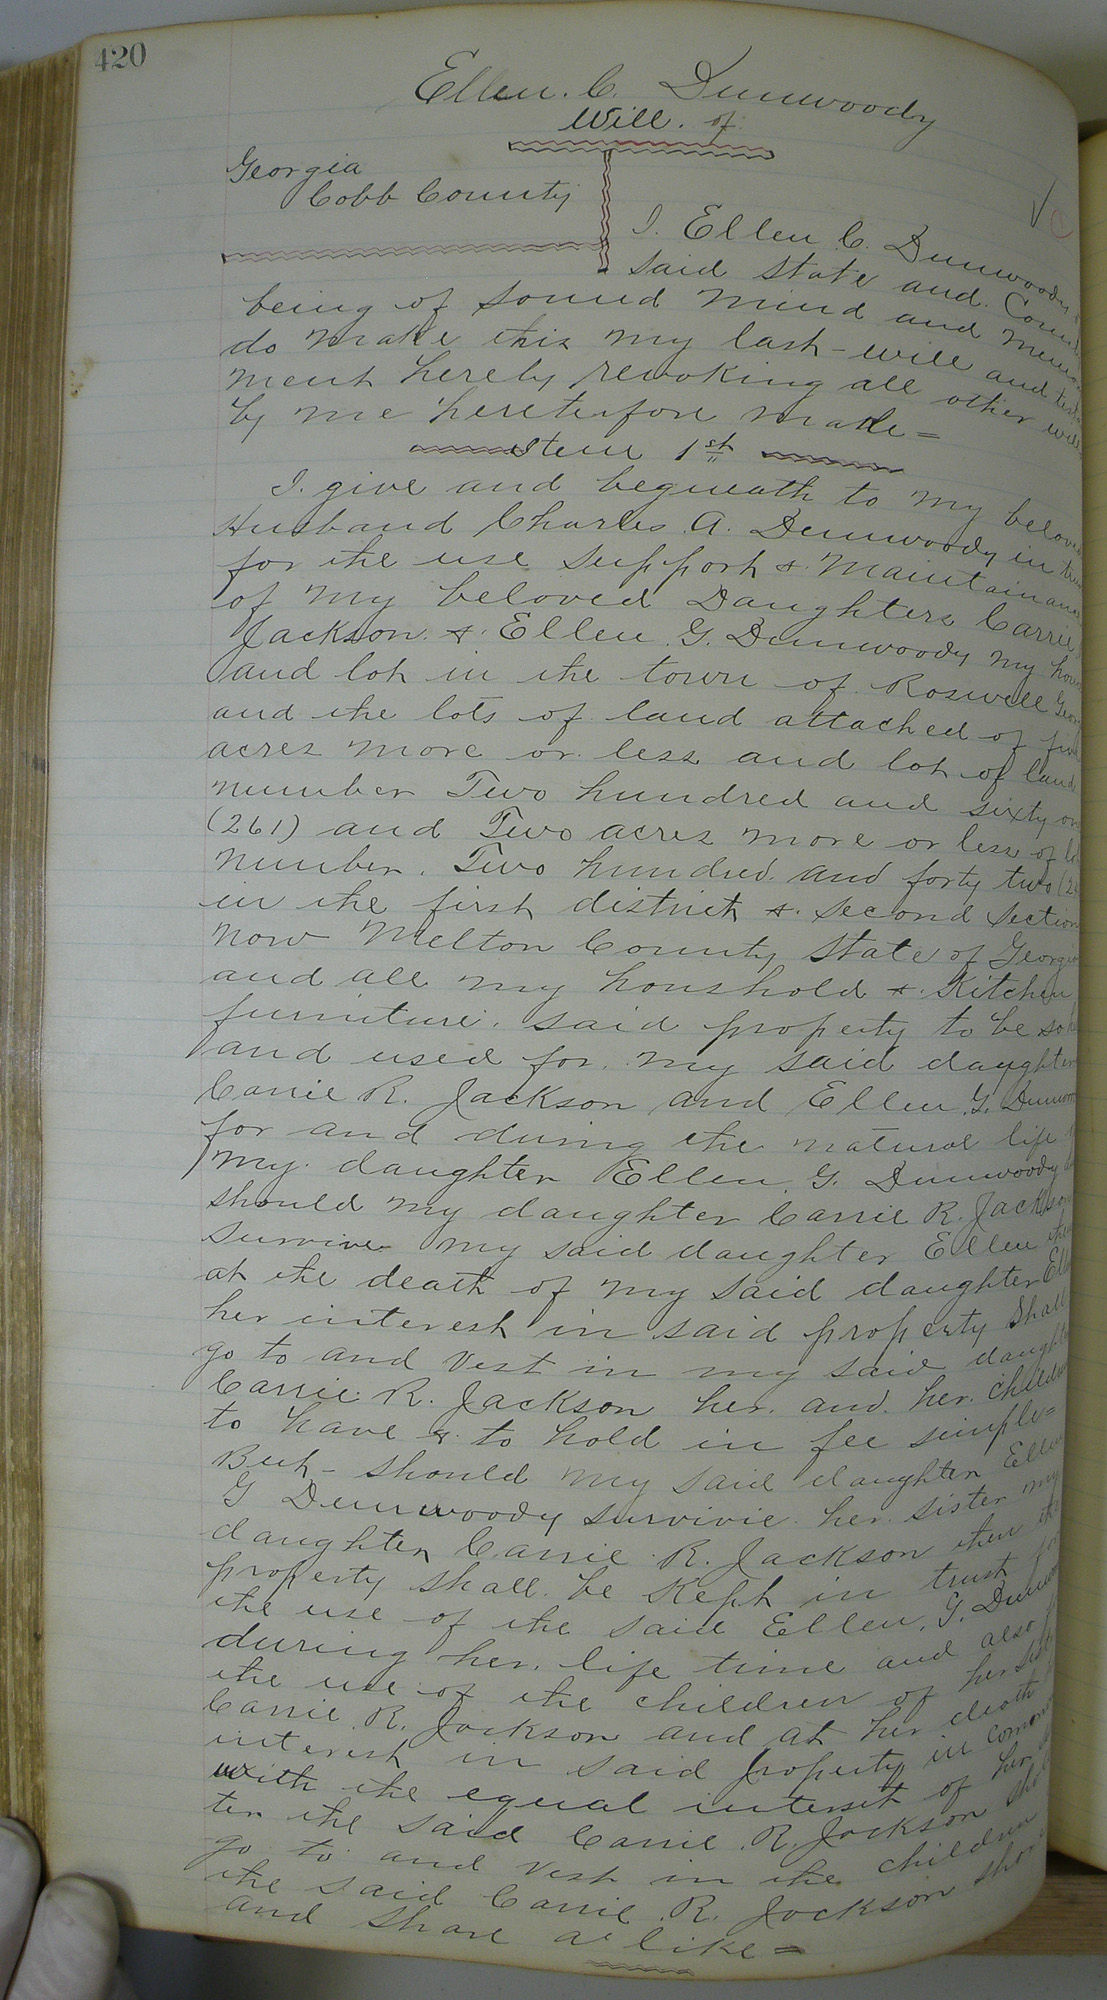 420
Ellen. C. Dunwoody
Will. of
Georgia
Cobb County
I. Ellen C. Dunwoody
said state and. County
being of sound mind and
do make this my last-will and
ment hereby revoking all other will
by me heretofore made=
Item 1st
I. give and bequeath to my beloved
Husband Charles A. Dunwoody in
for the use support & maintainance
of my beloved Daughters Carrie
Jackson. & Ellen G. Dunwoody my house
and lot in the town of Roswell
and the lots of land attached of
acres more or less and lot of land
number Two hundred and sixty one
(261) and Two acres more or less of
number. Two hundred. and forty two
in the first district & second section
now Melton County State of Georgia
and all my houshold & Kitchen
furniture. said property to be so
and used for. my said daughters
Carrie R. Jackson and Ellen G. Dunwoody
for and during the natural life
my. daughter Ellen. G. Dunwoody
should my daughter Carrie R. Jackson
survive my said daughter Ellen
at the death of my said daughter Ellen
her interest in said property shall
go to and vest in my said daughter
Carrie R. Jackson her. and. her. children
to have & to hold in fee simple=
But- should my said daughter Ellen
G Dunwoody survivie her sister my
daughter Carrie R. Jackson then the
property shall be kept in trust for
the use of the said Ellen. G. Dunwoody
during her. life time and also
the use of the children of her
Carrie R. Jackson and at her death
interest in said property in common
with the equal interest of her
ter the said Carrie R. Jackson
go to and vest in the children
the said Carrie R. Jackson share
and share a like=